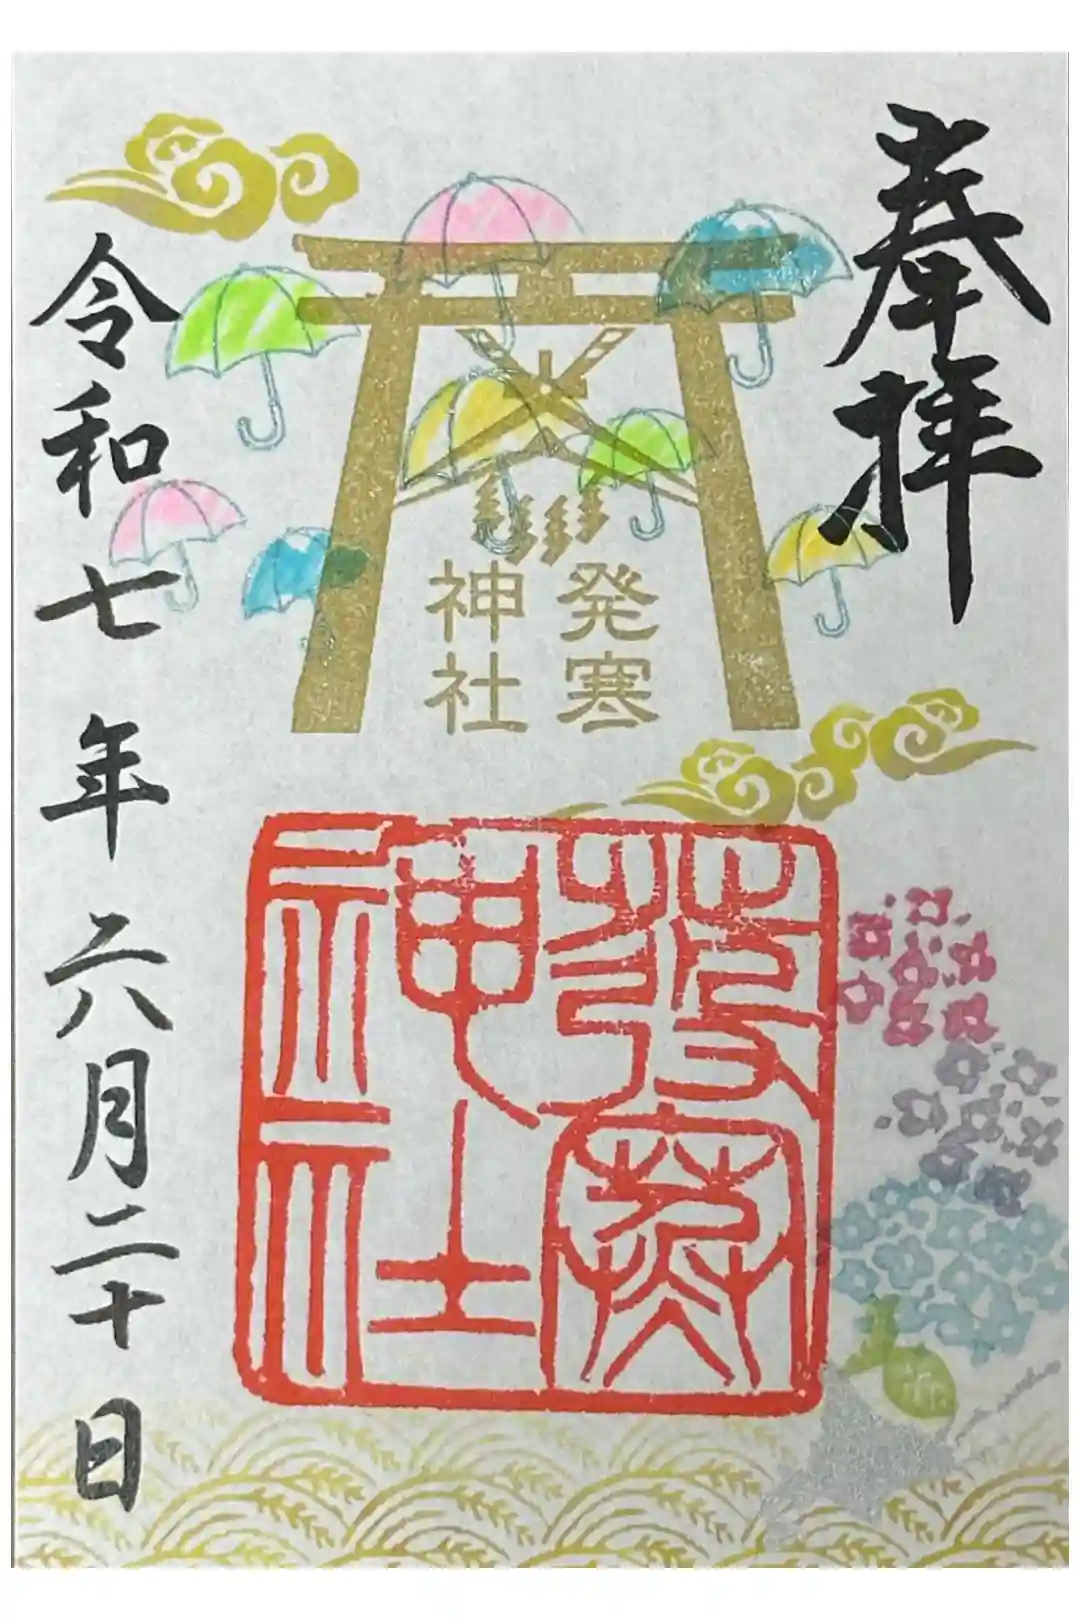 奉拝
発寒
神社
発寒
神社
令和七年六月二十日